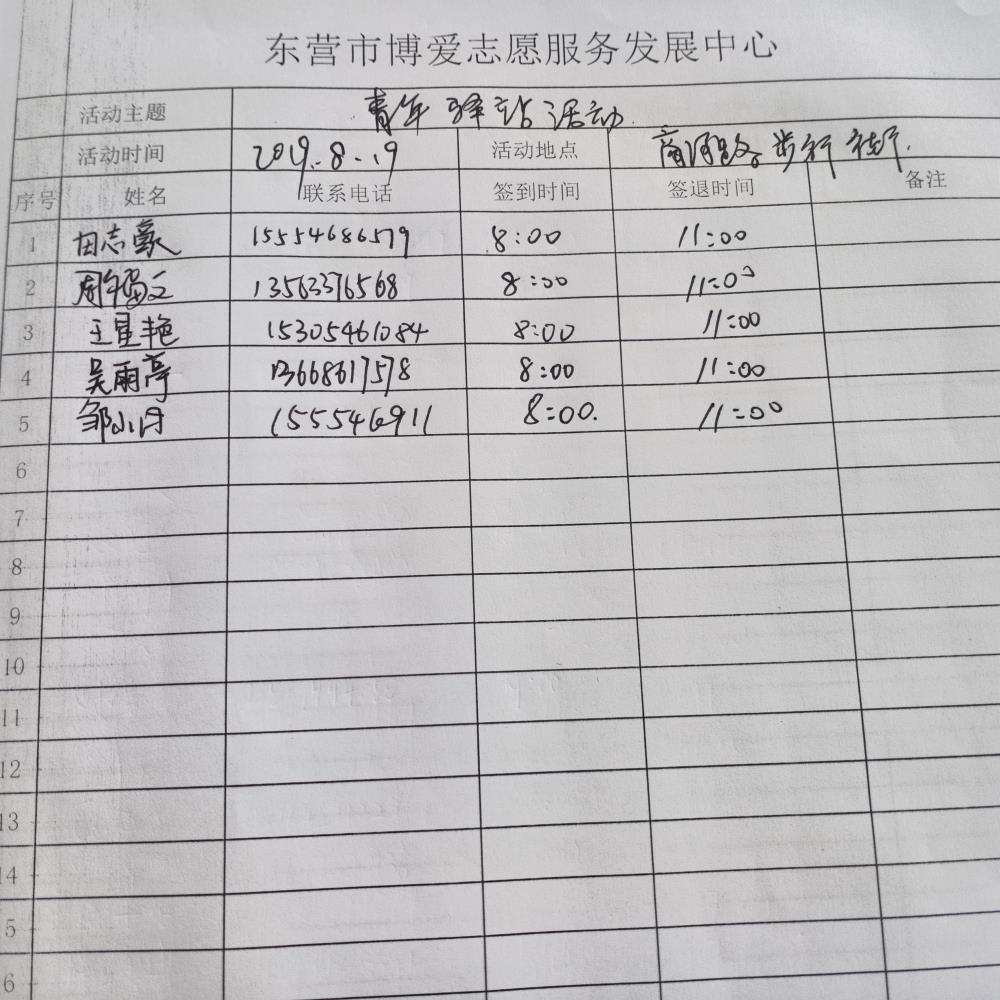 东营市博爱志愿服务发展中心
活动主题 青年驿站活动
活动时间 2019.8.19 活动地点 商河路步行街
序号 姓名 联系电话 签到时间 签退时间 备注
1 田志豪 15554686579 8:00 11:00
2 13563376568 8:00 11:00
3 王星艳 15305461084 8:00 11:00
4 吴雨亭 13668617578 8:00 11:00
5 邹小丹 1555546911 8:00. 11:00
6
7
8
9
10
11
12
13
14
5
6